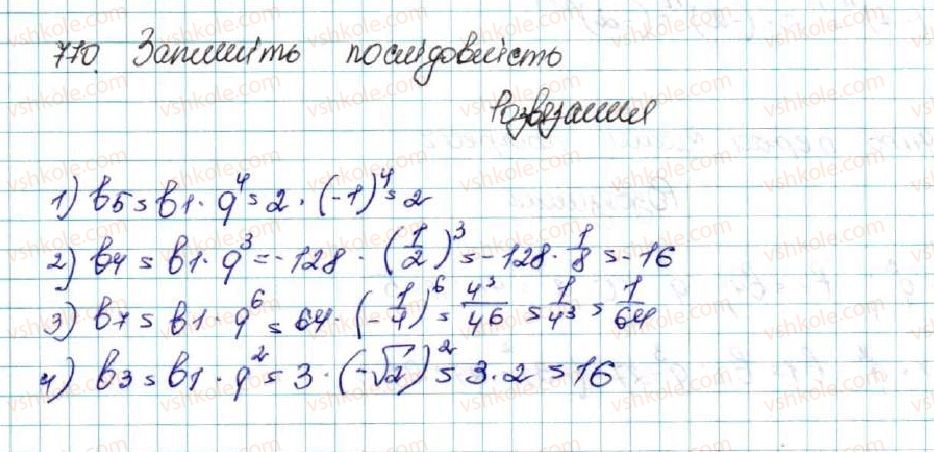 770. Запишіть послідовність
Розвязання
1) b5 = b1 · q^4 = 2 · (-1)^4 = 2
2) b4 = b1 · q^3 = -128 · (1/2)^3 = -128 · 1/8 = -16
3) b7 = b1 · q^6 = 64 · (-1/4)^6 = 4^3/4^6 = 1/4^3 = 1/64
4) b3 = b1 · q^2 = 3 · (-√2)^2 = 3 · 2 = 16